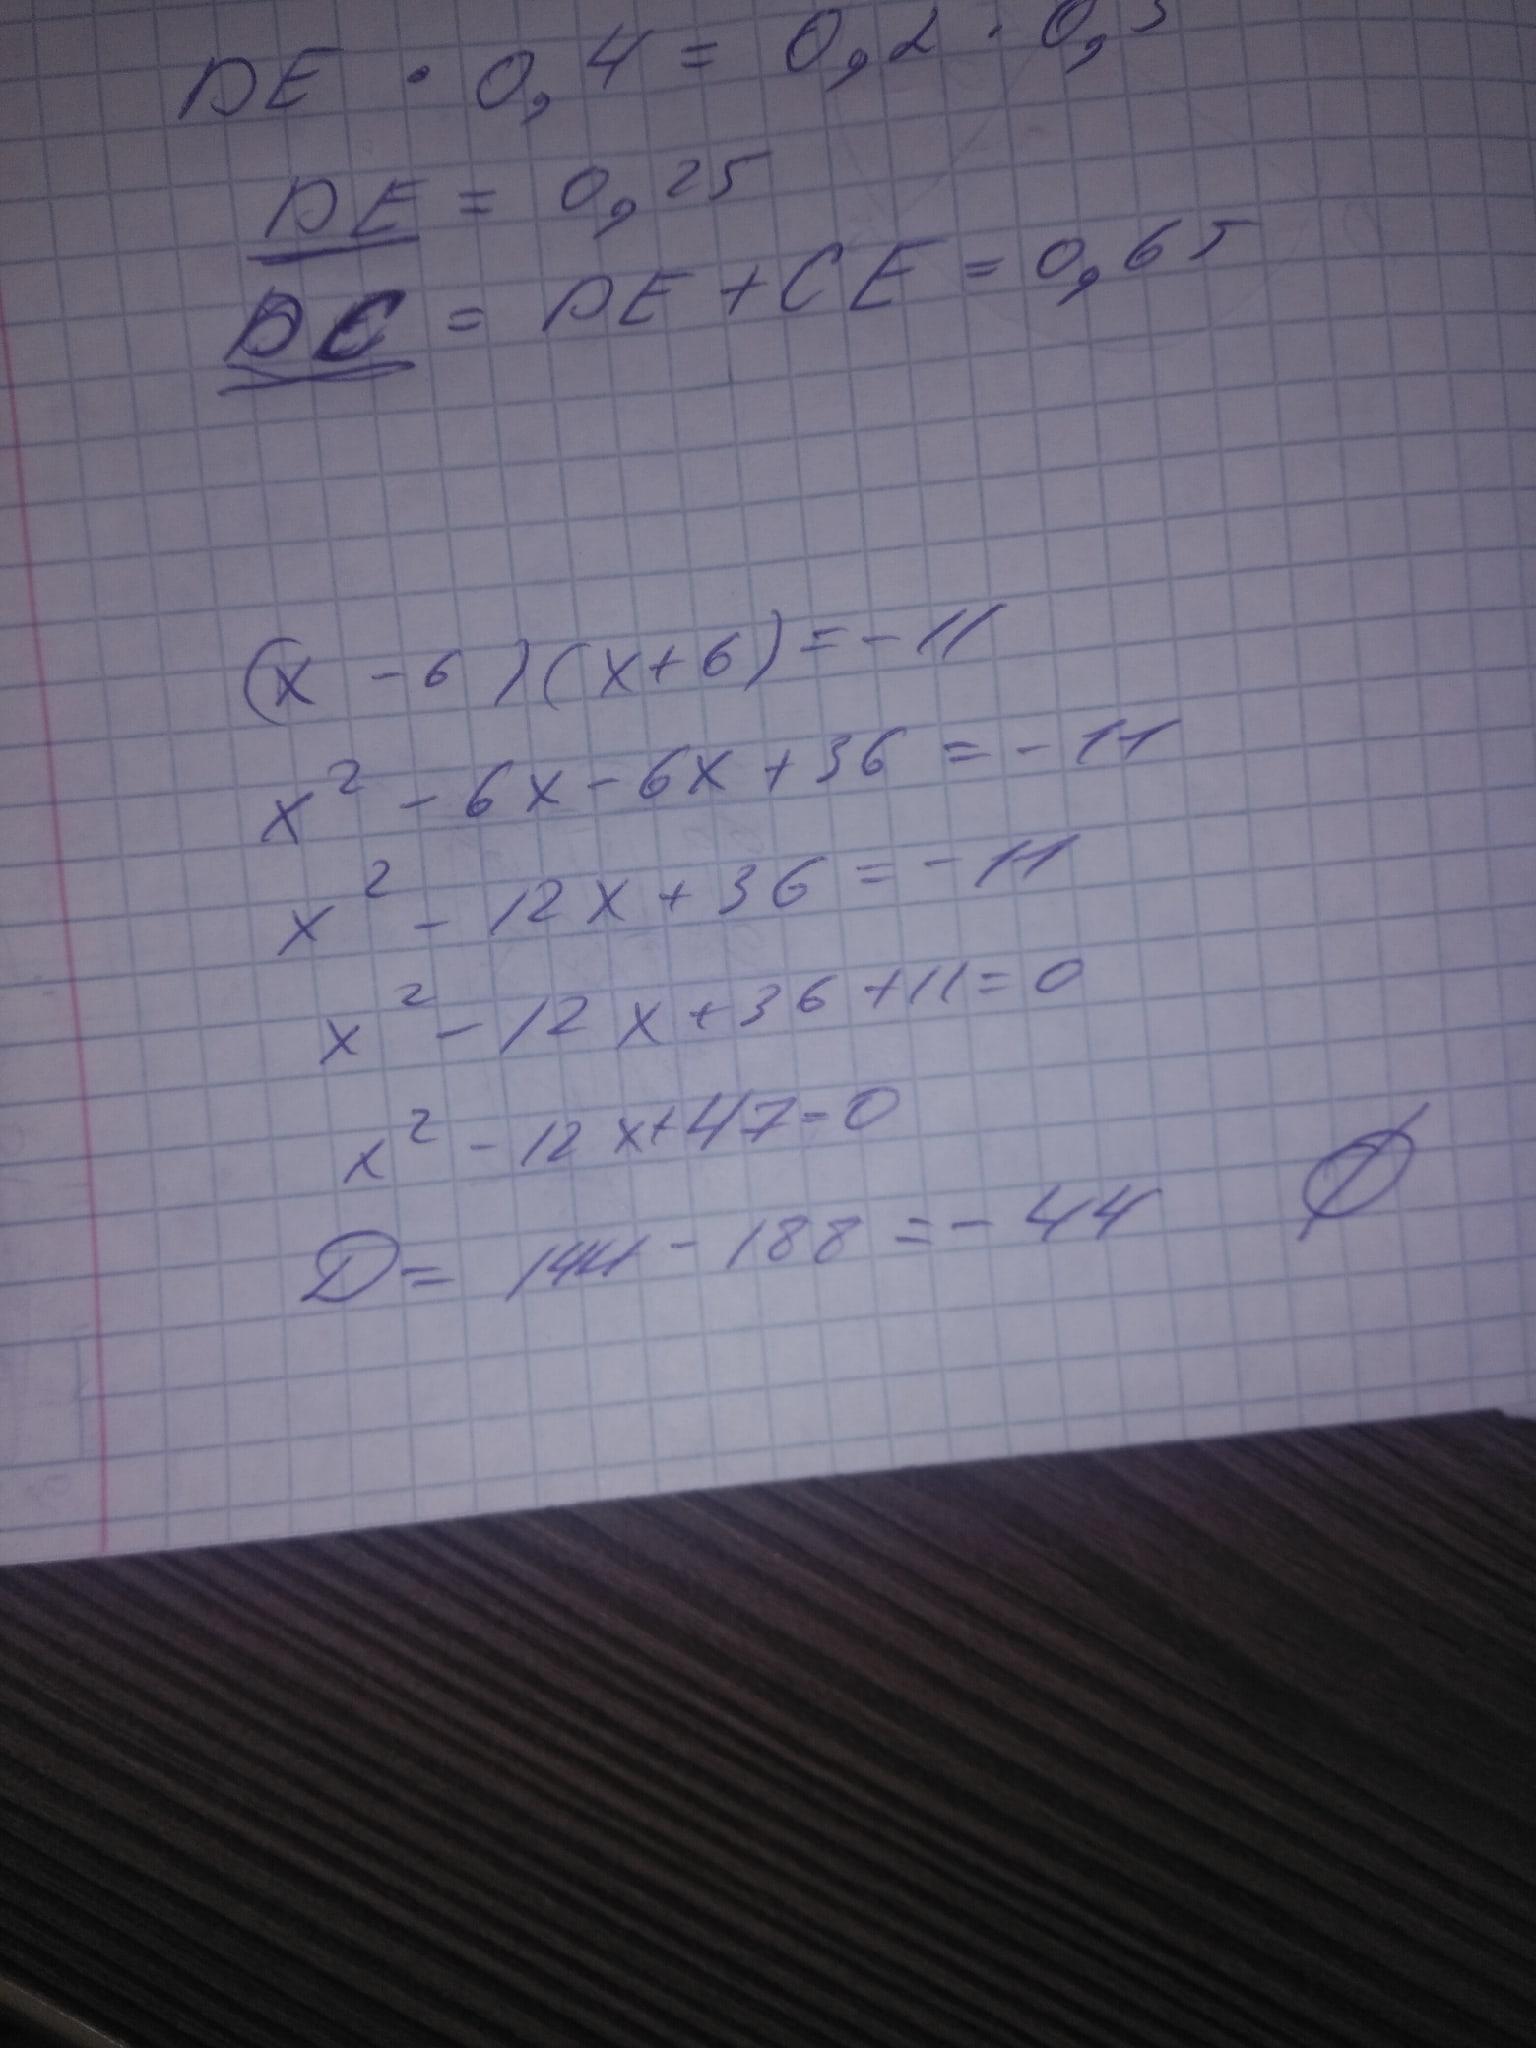 DE · 0,4 = 0,2 · 0,5
DE = 0,25
DC = DE + CE = 0,65
(x - 6)(x + 6) = - 11
x² - 6x - 6x + 36 = - 11
x² - 12x + 36 = - 11
x² - 12x + 36 + 11 = 0
x² - 12x + 47 = 0
D = 144 - 188 = - 44 Ø